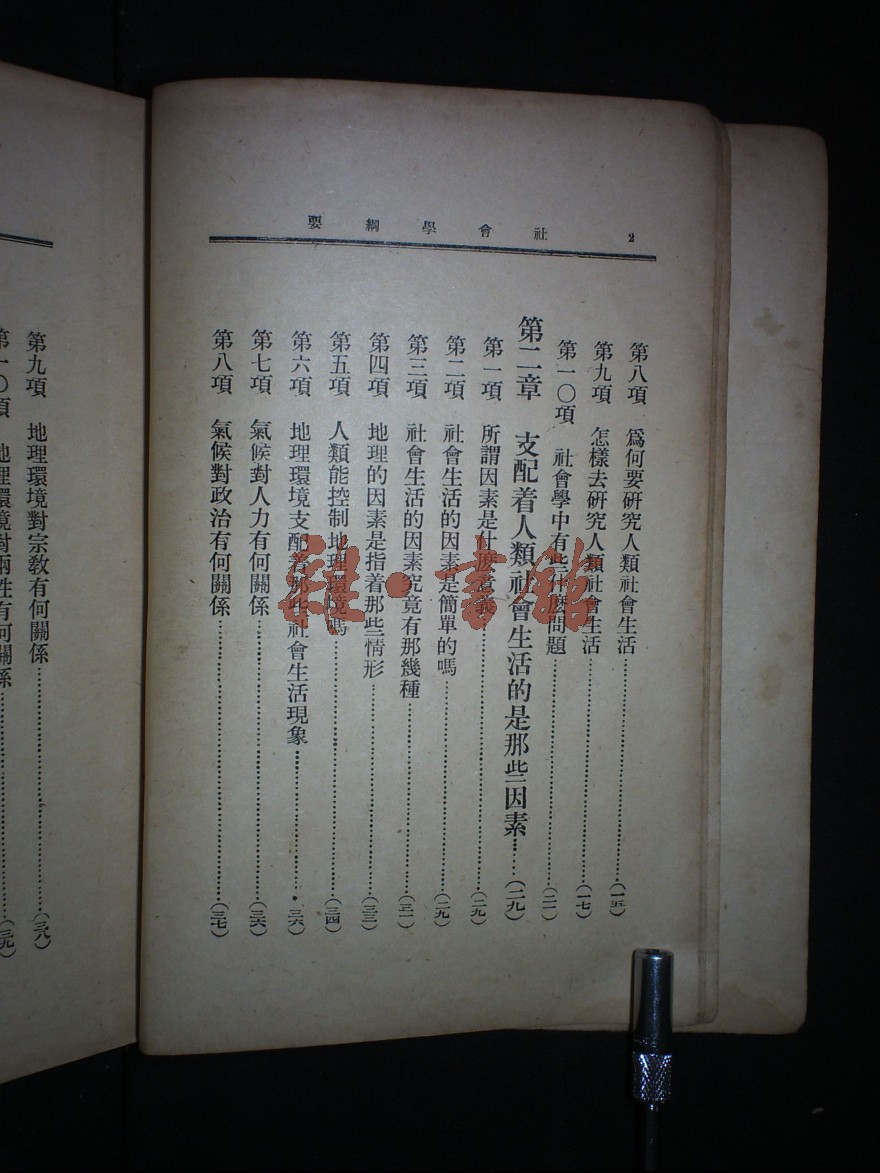 社會學綱要 2
第八項 爲何要研究人類社會生活……(一五)
第九項 怎樣去研究人類社會生活……(一七)
第一〇項 社會學中有些什麼問題……(二一)
第二章 支配着人類社會生活的是那些因素……(二九)
第一項 所謂因素是什麼意義……(二九)
第二項 社會生活的因素是簡單的嗎……(二九)
第三項 社會生活的因素究竟有那幾種……(三一)
第四項 地理的因素是指着那些情形……(三三)
第五項 人類能控制地理環境嗎……(三四)
第六項 地理環境支配着那些社會生活現象……(三六)
第七項 氣候對人力有何關係……(三六)
第八項 氣候對政治有何關係……(三七)
第九項 地理環境對宗教有何關係……(三八)
第一〇項 地理環境對兩性有何關係……(三九)
雜·書館